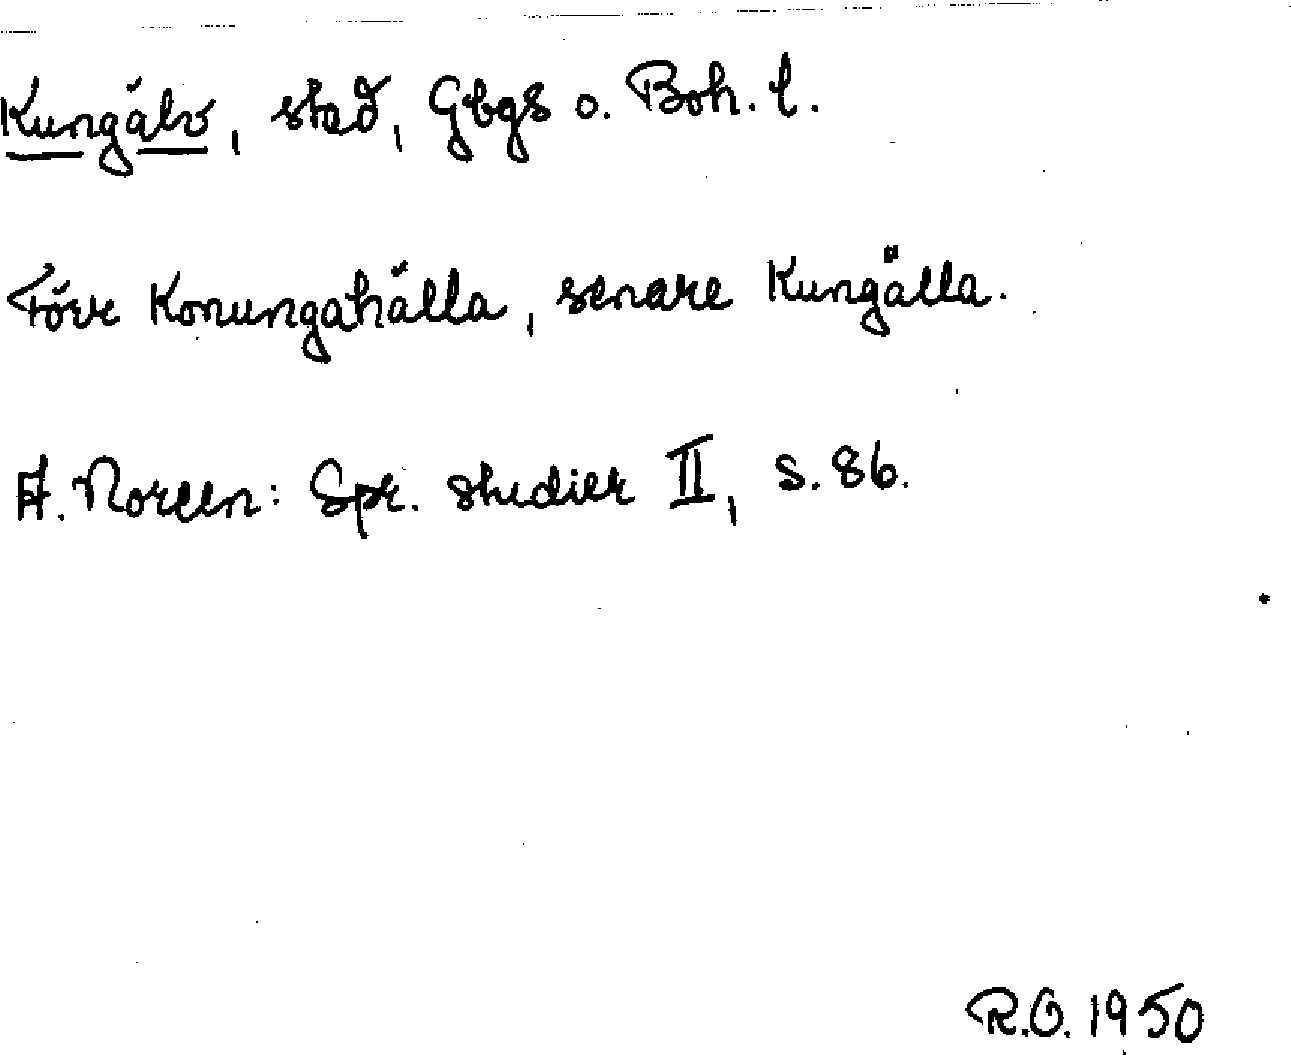 Kungälv, stad, Gbgs o. Boh. l.
Förr Konungahälla, senare Kungälla.
A. Noreen: Spr. studier II, s. 86.
R.O. 1950